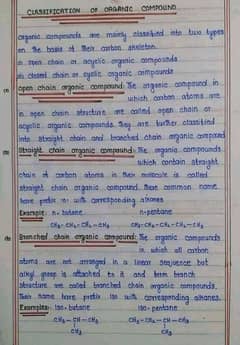 CLASSIFICATION OF ORGANIC COMPOUND
organic compounds are mainly classified into two types
on the basis of their carbon skeleton.
open chain or acyclic organic compounds
closed chain or cyclic organic compounds
open chain organic compound: The organic compound in
which carbon atoms are
in open chain structure are called open chain or
acyclic organic compounds they are further classified
into straight chain and branched chain organic compound
straight chain organic compound: The organic compounds
which contain straight
chain of carbon atoms in their molecule is called
straight chain organic compound. These common name
have prefix n- with corresponding alkanes
Example: n- butane n-pentane
CH3-CH2-CH2-CH3 CH3-CH2-CH2-CH2-CH3
Branched chain organic compound: The organic compounds
in which all carbon
atoms are not arranged in a linear sequence but
alkyl group is attached to it and form branch
structure are called branched chain organic compounds.
Their name have prefix iso with corresponding alkanes.
Examples: iso- butane iso- pentane
CH3 - CH - CH3 CH3 - CH2 - CH - CH3
CH3 CH3